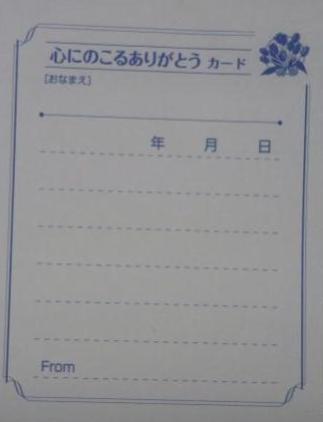 心にのこるありがとう カード
[おなまえ]
年 月 日
From